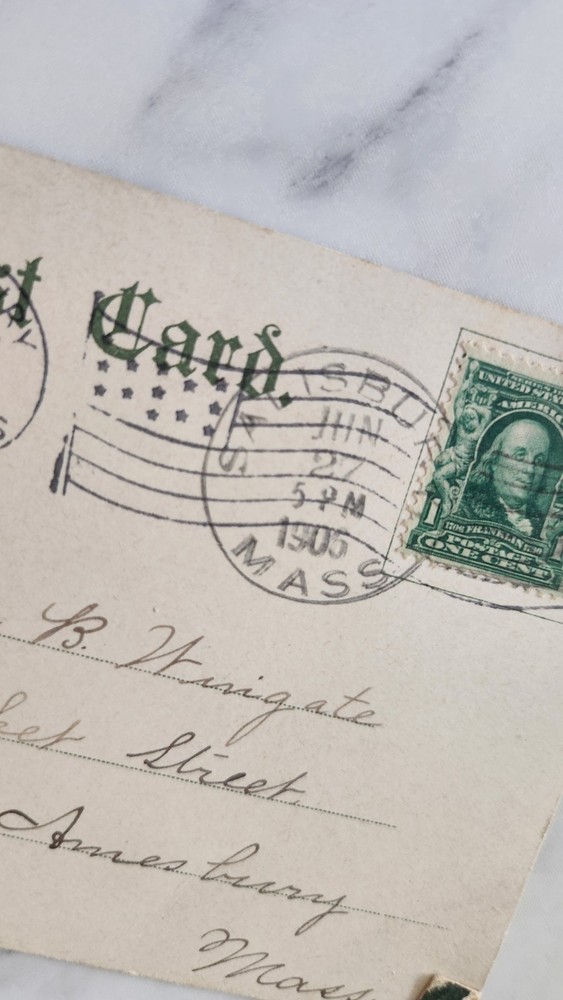 Card.
SALISBURY
JUN
27
5 PM
1905
MASS
UNITED STATES
AMERICA
1
1706 FRANKLIN 1790
POSTAGE
ONE CENT
B. Wingate
Street.
Amesbury
Mass